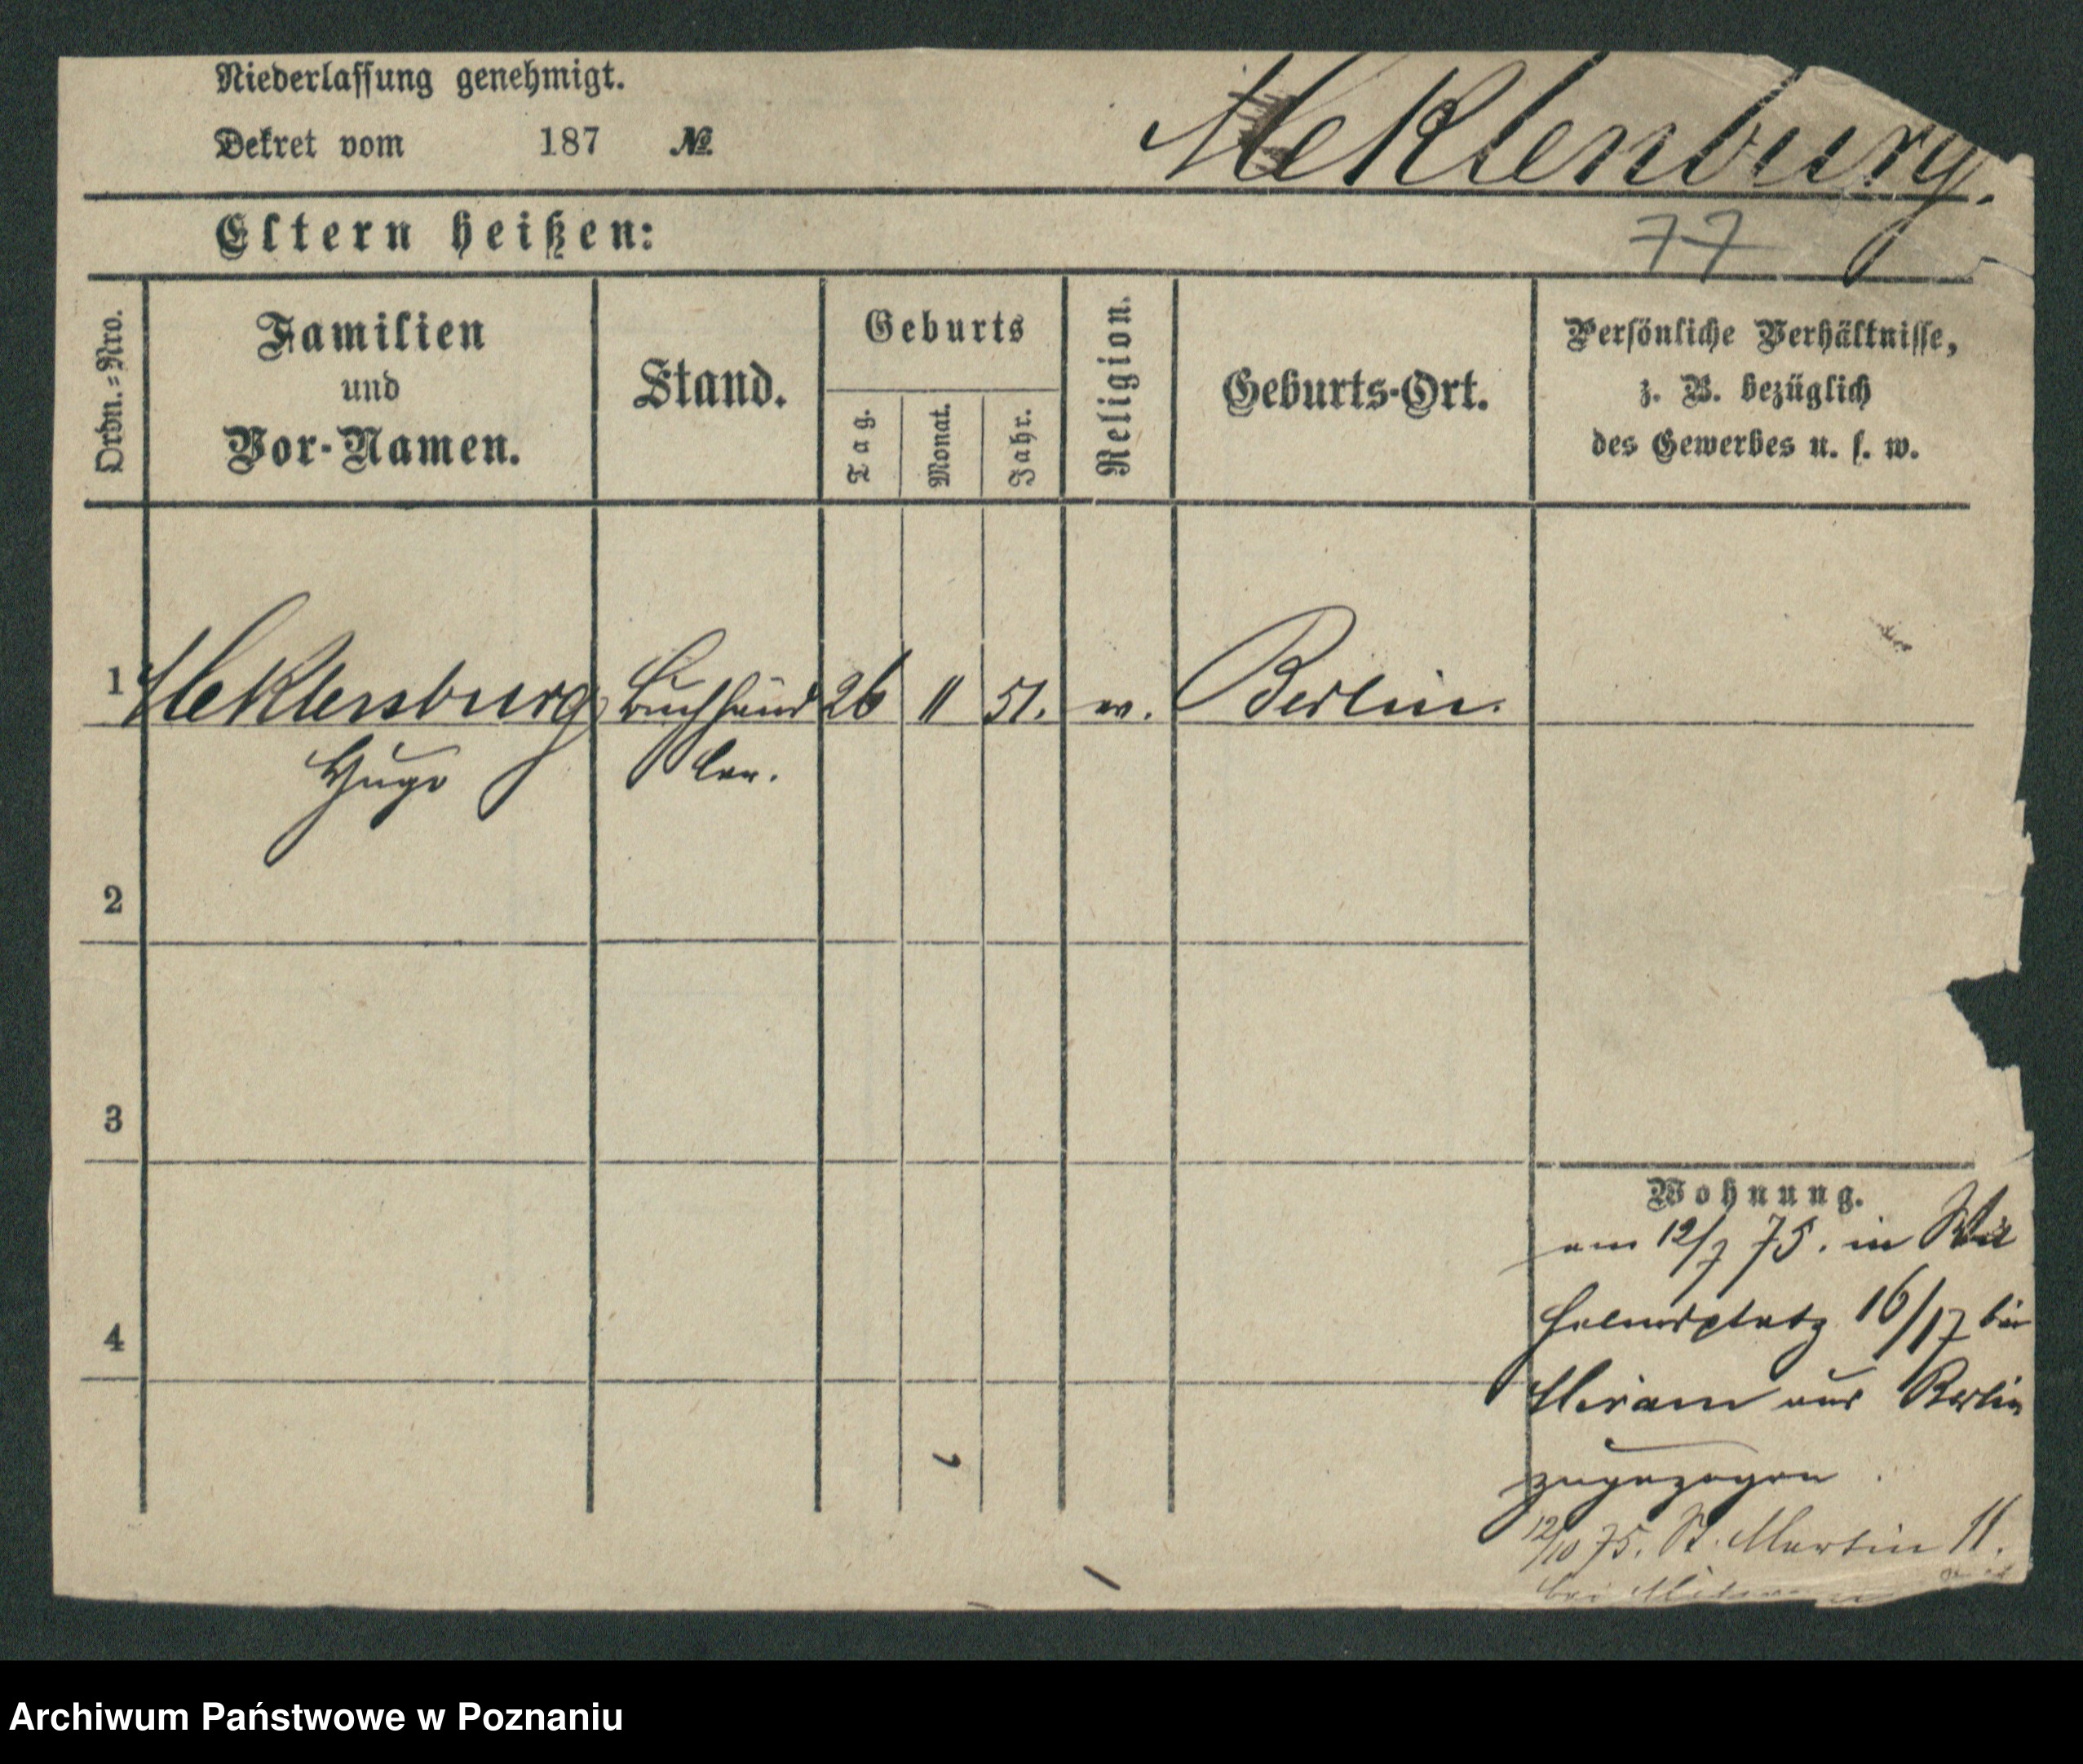 Niederlassung genehmigt.
Meklenburg.
Dekret vom 187 №
77
Eltern heißen:
Ordn.=Nro.
Familien
und
Vor-Namen.
Stand.
Geburts
Tag.
Monat.
Jahr.
Religion.
Geburts-Ort.
Persönliche Verhältnisse,
z. B. bezüglich
des Gewerbes u. s. w.
1 Meklenburg Buchhänd 26 11 51. Berlin.
Hugo ler.
2
3
4
Wohnung.
am 12/7 75. in Wil
helmsplatz 16/17 bei
aus Berlin
zugezogen.
12/10 75. St. Martin 11.
bei
Archiwum Państwowe w Poznaniu